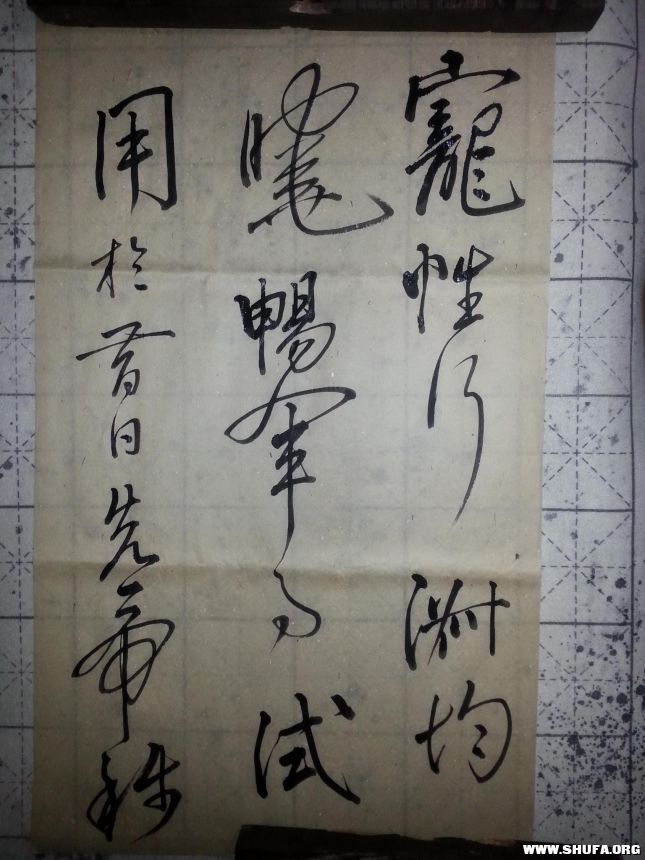 寵性行淑均
曉暢軍事試
用於昔日先帝稱
WWW.SHUFA.ORG